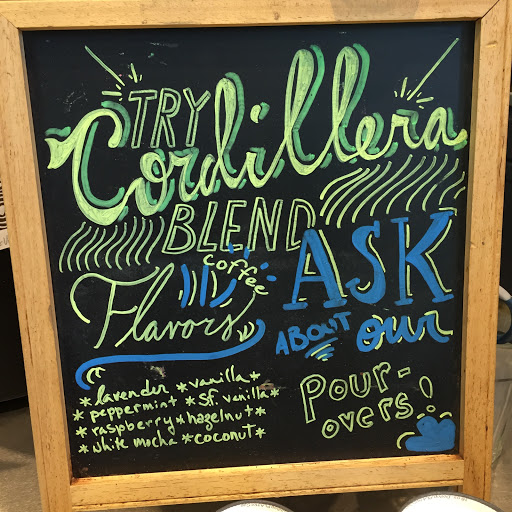 TRY
Cordillera
BLEND
coffee
Flavors
*lavender *vanilla*
*peppermint *sf. vanilla*
*raspberry*hazelnut*
*white mocha *coconut*
ASK
ABOUT our
Pour-
overs!